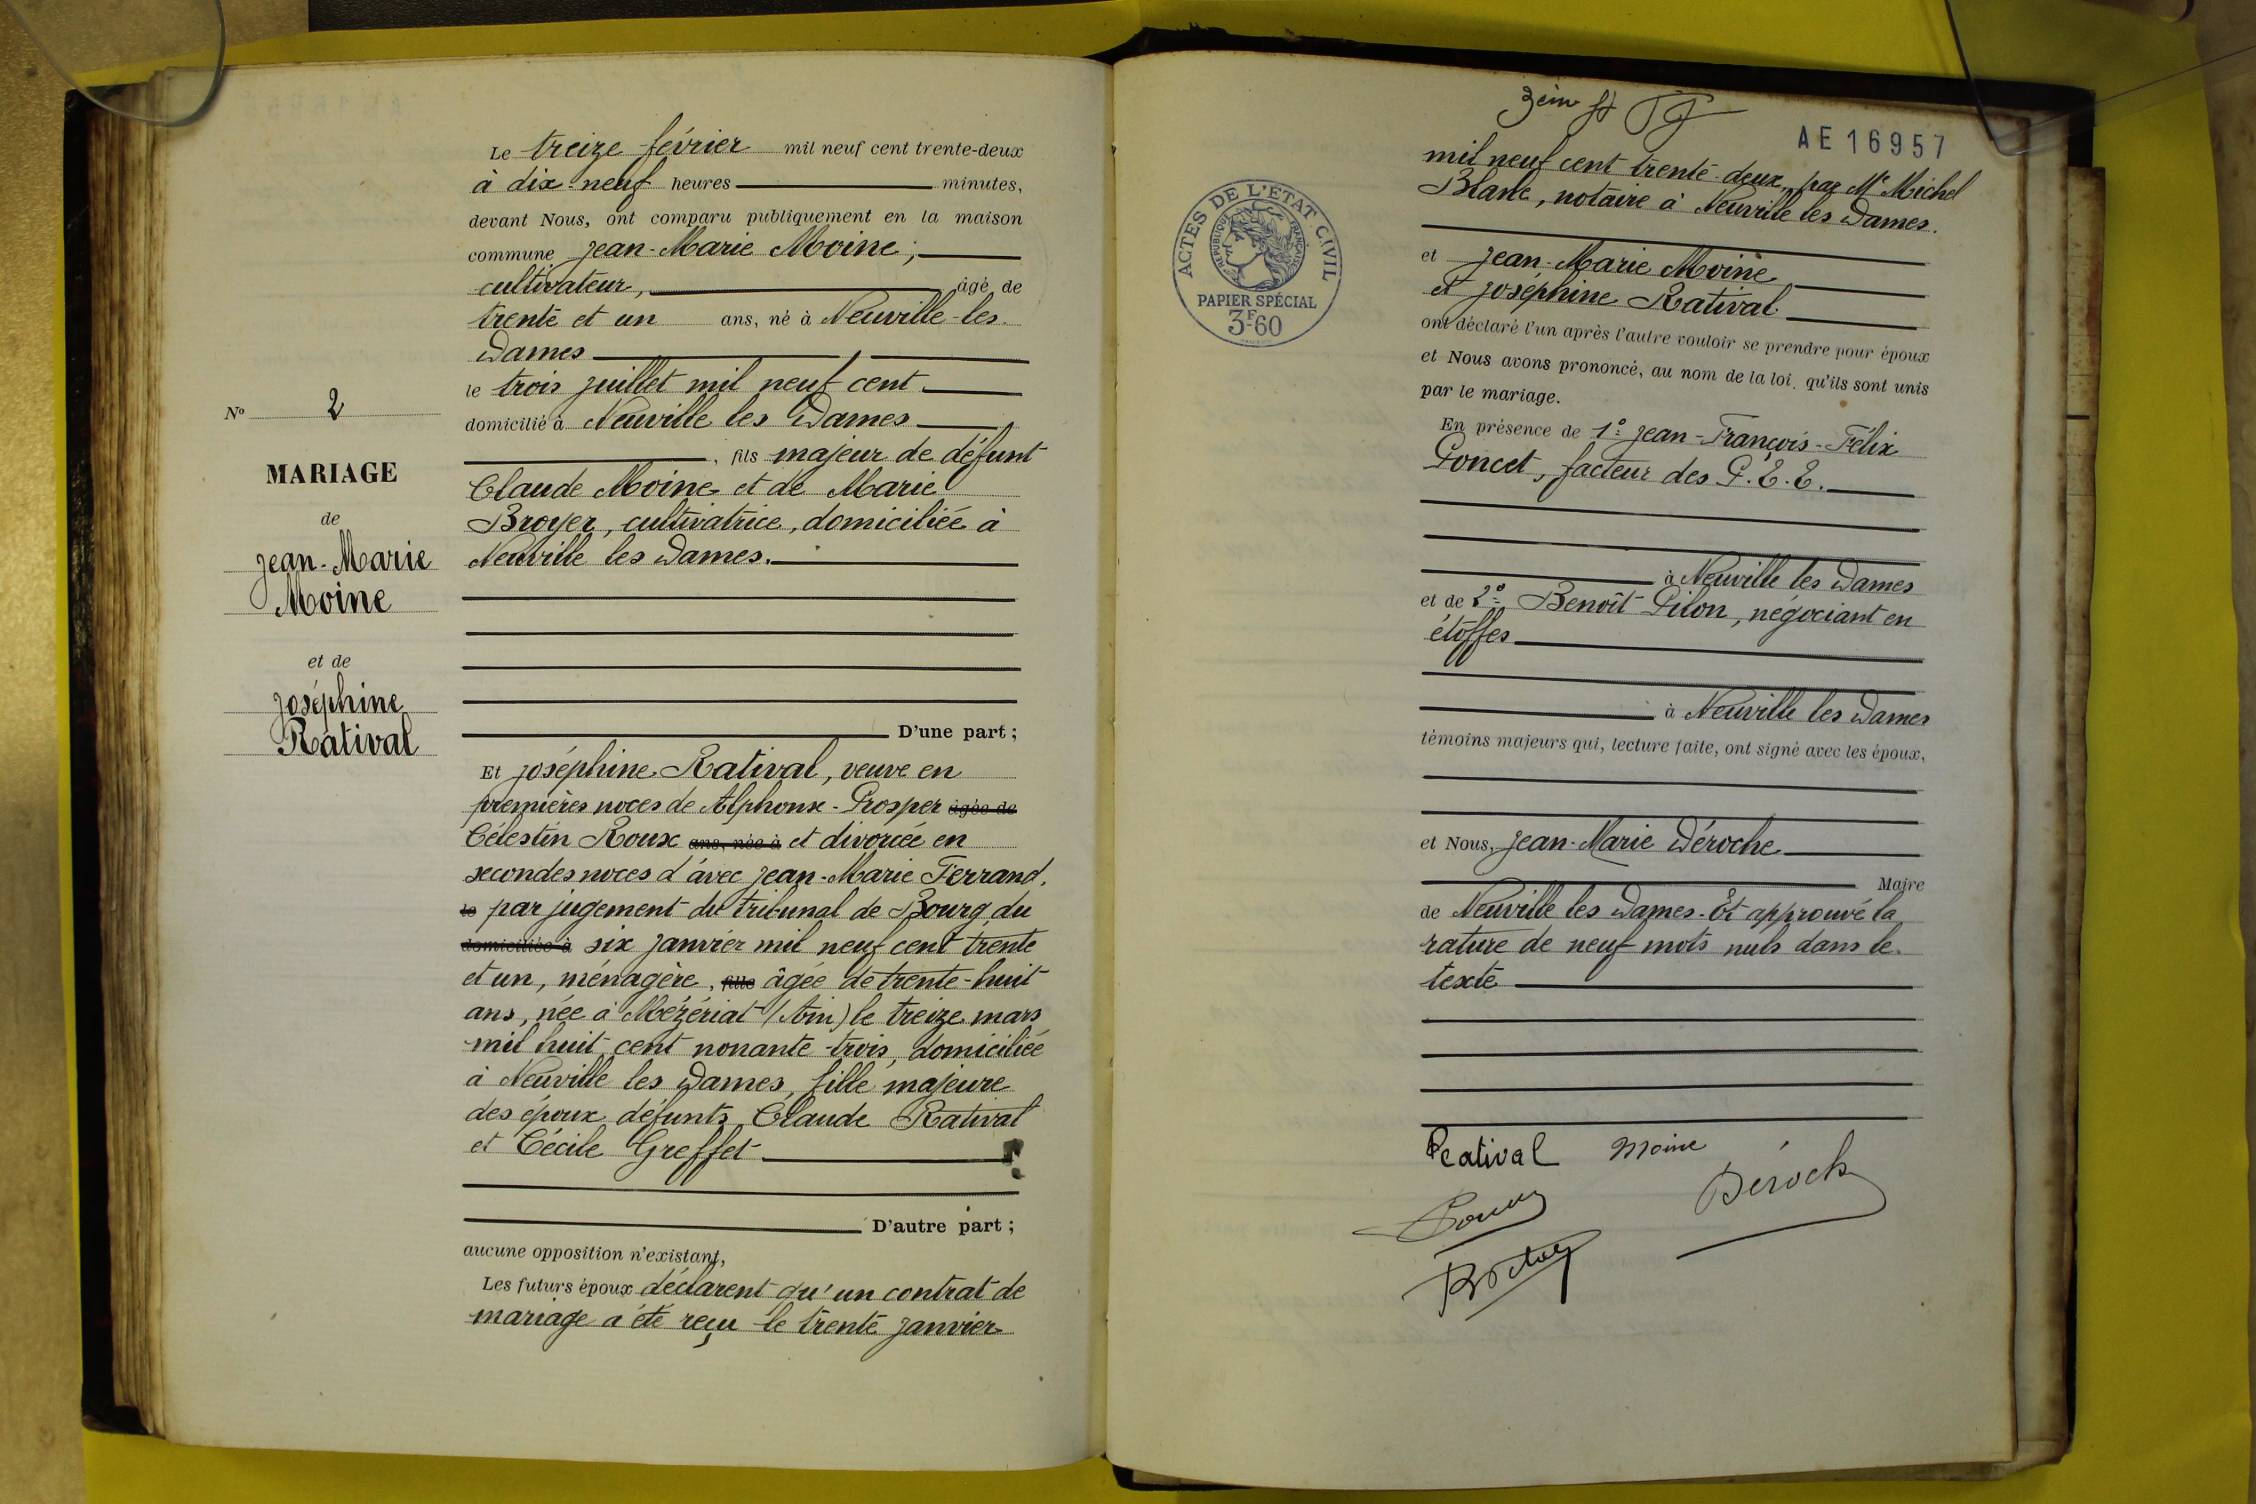 Le treize février mil neuf cent trente-deux
à dix-neuf heures minutes,
devant Nous, ont comparu publiquement en la maison
commune Jean-Marie Moine,
cultivateur, âgé de
trente et un ans, né à Neuville-les-
Dames,
le trois juillet mil neuf cent
domicilié à Neuville les Dames
, fils majeur de défunt
Claude Moine et de Marie
Broyer, cultivatrice, domiciliée à
Neuville les Dames.
D'une part ;
Nº 2
MARIAGE
de
Jean-Marie
Moine
et de
Joséphine
Ratival
Et Joséphine Ratival, veuve en
premières noces de Alphonse-Prosper âgée de
Célestin Roux ans, née à et divorcée en
secondes noces d'avec Jean-Marie Ferrand,
le par jugement du tribunal de Bourg du
domiciliée à six janvier mil neuf cent trente
et un, ménagère, fille âgée de trente-huit
ans, née à Mézériat (Ain) le treize mars
mil huit cent nonante-trois, domiciliée
à Neuville les Dames, fille majeure
des époux défunts Claude Ratival
et Cécile Greffet
D'autre part ;
aucune opposition n'existant,
Les futurs époux déclarent qu'un contrat de
mariage a été reçu le trente janvier
3em
AE16957
ACTES DE L'ETAT CIVIL
REPUBLIQUE FRANÇAISE
PAPIER SPÉCIAL
3F60
mil neuf cent trente-deux, par Me Michel
Blanc, notaire à Neuville les Dames.
et Jean-Marie Moine
et Joséphine Ratival
ont déclaré l'un après l'autre vouloir se prendre pour époux
et Nous avons prononcé, au nom de la loi, qu'ils sont unis
par le mariage.
En présence de 1º Jean-François-Félix
Poncet, facteur des P.E.E.
à Neuville les Dames
et de 2º Benoît Pilon, négociant en
étoffes
à Neuville les Dames
témoins majeurs qui, lecture faite, ont signé avec les époux,
et Nous, Jean-Marie Déroche
Maire
de Neuville les Dames. Et approuvé la
rature de neuf mots nuls dans le
texte
Ratival Moine
Déroche